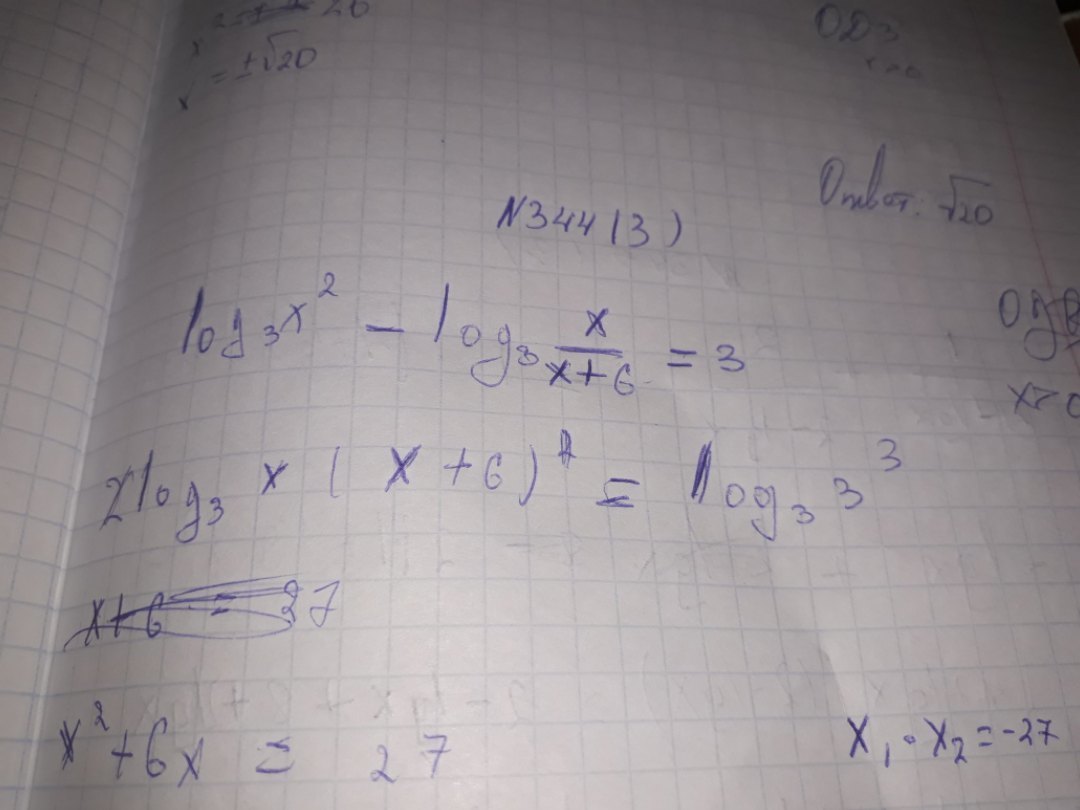 = ±√20
ОДЗ
Ответ: √20
N344(3)
log₃x² - log₃ x/(x+6) = 3
x>0
log₃ x (x+6) = log₃ 3³
x+6 = 27
x² + 6x = 27
x₁ · x₂ = -27